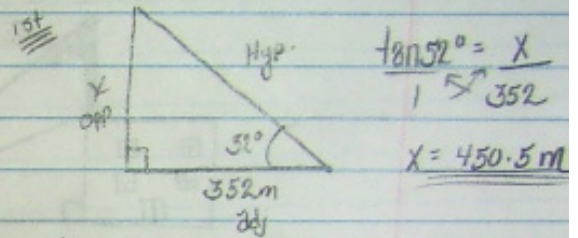 1st
Hyp.
x
opp
52°
352m
adj
tan52° = x
1 352
x = 450.5 m